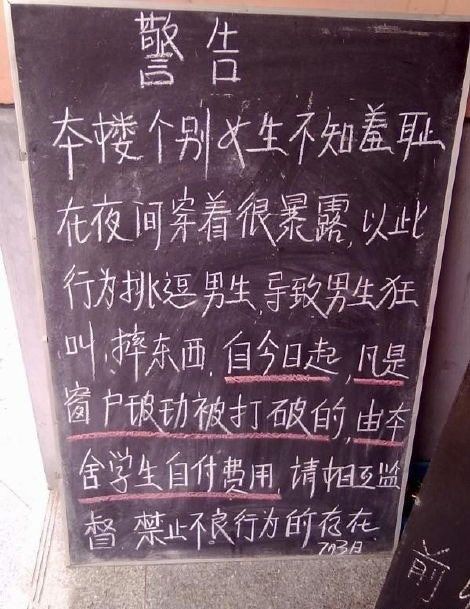 警告
本楼个别女生不知羞耻
在夜间穿着很暴露,以此
行为挑逗男生,导致男生狂
叫,摔东西,自今日起,凡是
窗户玻功被打破的,由本
舍学生自付费用,请相互监
督 禁止不良行为的存在
前